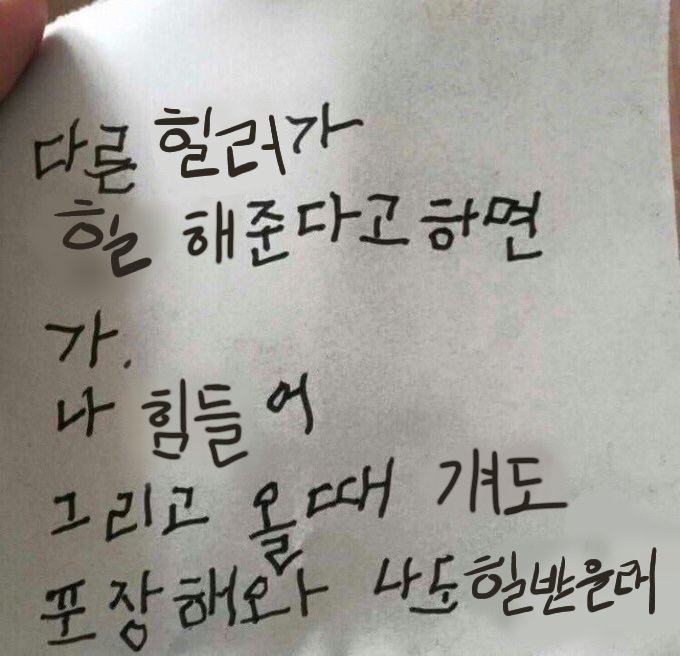 다른 힐러가
힐 해준다고하면
가.
나 힘들어
그리고 올때 걔도
포장해와 나도힐받을래